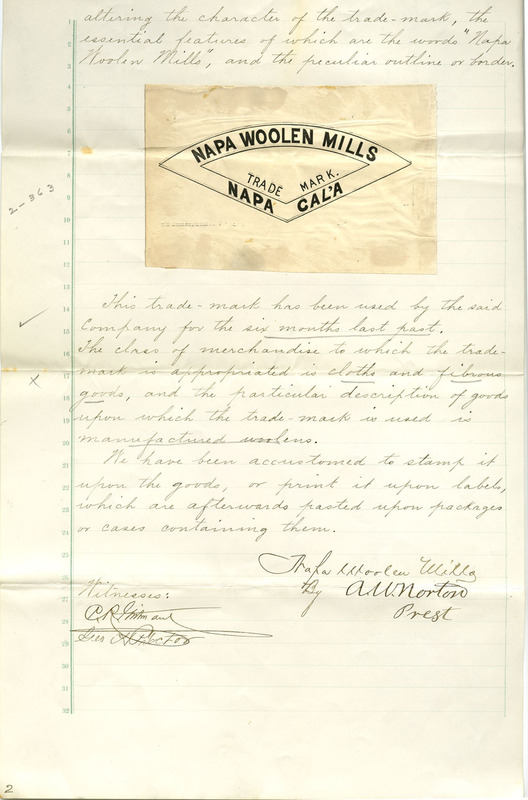 altering the character of the trade-mark, the
essential features of which are the words "Napa
Woolen Mills", and the peculiar outline or border.
NAPA WOOLEN MILLS
TRADE MARK.
NAPA CAL'A
2-363
This trade-mark has been used by the said
Company for the six months last past.
The class of merchandise to which the trade-
mark is appropriated is cloths and fibrous
goods, and the particular description of goods
upon which the trade-mark is used is
manufactured woolens.
We have been accustomed to stamp it
upon the goods, or print it upon labels,
which are afterwards pasted upon packages
or cases containing them.
Napa Woolen Mills
By A. W. Norton
Prest
Witnesses:
1
2
3
4
5
6
7
8
9
10
11
12
13
14
15
16
17
18
19
20
21
22
23
24
25
26
27
28
29
30
31
32
x
2